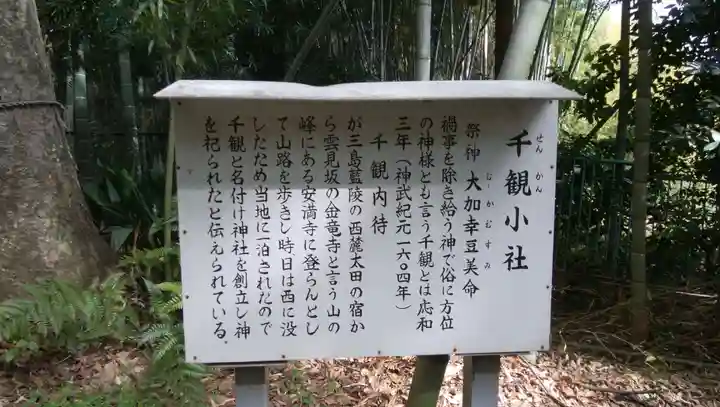 千観小社
せんかん
祭神 大加幸豆美命
じかむすみ
禍事を除き給う神で俗に方位
の神様とも言う千観とは応和
三年（神武紀元一六〇四年）
千観内待
が三島藍陵の西麓太田の宿か
ら雲見坂の金竜寺と言う山の
峰にある安満寺に登らんとし
て山路を歩きし時日は西に没
したため当地に一泊されたので
千観と名付け神社を創立し神
を祀られたと伝えられている。